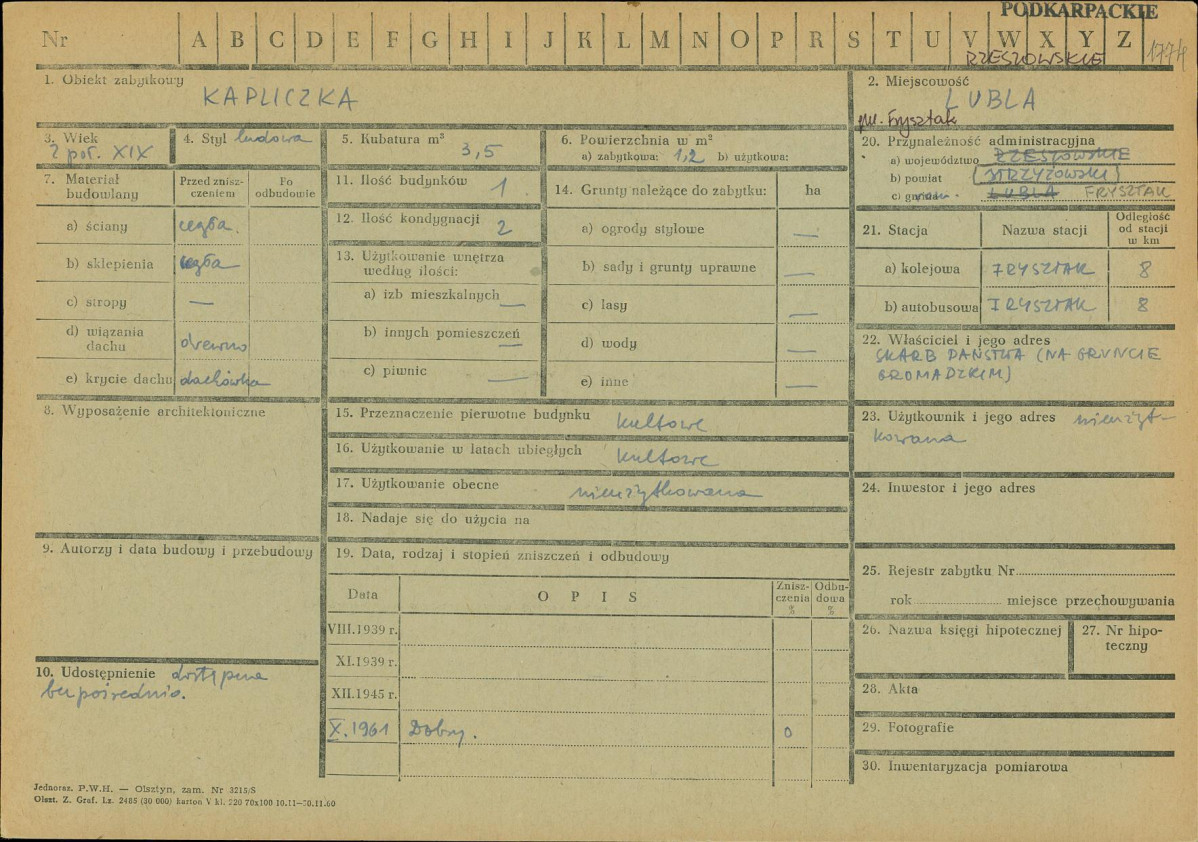 PODKARPACKIE
Nr A B C D E F G H I J K L M N O P R S T U V W X Y Z
RZESZOWSKIE
1. Obiekt zabytkowy
KAPLICZKA
2. Miejscowość
LUBLA
gm. Frysztak
3. Wiek
2 poł. XIX
4. Styl ludowa
5. Kubatura m³
3,5
6. Powierzchnia w m²
a) zabytkowa: 1,2 b) użytkowa:
7. Materiał budowlany
Przed zniszczeniem
Po odbudowie
a) ściany cegła.
b) sklepienia cegła
c) stropy —
d) wiązania dachu drewno
e) krycie dachu dachówka
11. Ilość budynków 1
12. Ilość kondygnacji 2
13. Użytkowanie wnętrza według ilości:
a) izb mieszkalnych —
b) innych pomieszczeń —
c) piwnic —
14. Grunty należące do zabytku: ha
a) ogrody stylowe —
b) sady i grunty uprawne —
c) lasy —
d) wody —
e) inne —
20. Przynależność administracyjna
a) województwo RZESZOWSKIE
b) powiat (STRZYŻOWSKI)
c) gmina LUBLA FRYSZTAK
21. Stacja
Nazwa stacji
Odległość od stacji w km
a) kolejowa FRYSZTAK 8
b) autobusowa FRYSZTAK 8
22. Właściciel i jego adres
SKARB PAŃSTWA (NA GRUNCIE
GROMADZKIM)
8. Wyposażenie architektoniczne
15. Przeznaczenie pierwotne budynku kultowe
16. Użytkowanie w latach ubiegłych kultowe
17. Użytkowanie obecne nieużytkowana
18. Nadaje się do użycia na
23. Użytkownik i jego adres nieużyt-
kowana
24. Inwestor i jego adres
9. Autorzy i data budowy i przebudowy
19. Data, rodzaj i stopień zniszczeń i odbudowy
Data
O P I S
Zniszczenia %
Odbudowa %
VIII.1939 r.
XI.1939 r.
XII.1945 r.
X.1961 Dobry. 0
25. Rejestr zabytku Nr
rok miejsce przechowywania
26. Nazwa księgi hipotecznej
27. Nr hipoteczny
28. Akta
29. Fotografie
30. Inwentaryzacja pomiarowa
10. Udostępnienie dostępna
bezpośrednio.
Jednoraz. P.W.H. — Olsztyn, zam. Nr 3215/S
Olszt. Z. Graf. Lz. 2485 (30 000) karton V kl. 220 70x100 10.11—30.11.60